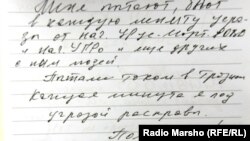 Мне пытают, бьют
в каждую минуту угро
зы от нач. Урус-Март РОВД
и нач УПРо и еще других
с ним людей.
Пытали током в Грозном
Каждая минута я под
угрозой расправы.
Radio Marsho (RFE/RL)